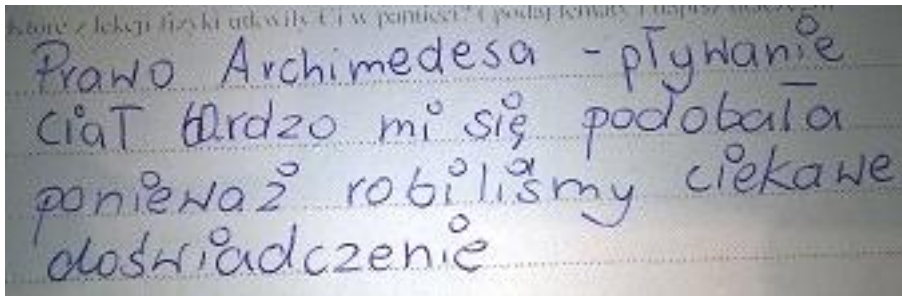 które z lekcji fizyki utkwiły Ci w pamięci? (podaj tematy i napisz dlaczego)
Prawo Archimedesa - pływanie
ciał bardzo mi się podobała
ponieważ robiliśmy ciekawe
doświadczenie